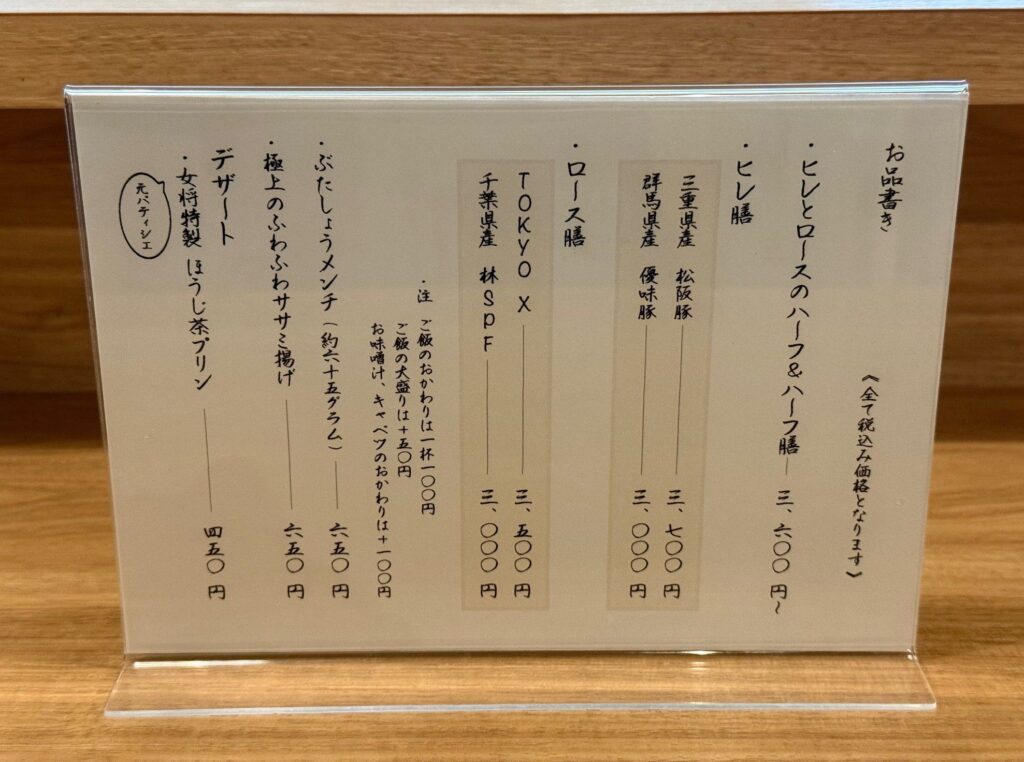 お品書き
《全て税込み価格となります》
・ヒレとロースのハーフ&ハーフ膳 三、六〇〇円~
・ヒレ膳
三重県産 松阪豚 三、七〇〇円
群馬県産 優味豚 三、〇〇〇円
・ロース膳
TOKYO X 三、五〇〇円
千葉県産 林SPF 三、〇〇〇円
・注 ご飯のおかわりは一杯一〇〇円
ご飯の大盛りは+五〇円
お味噌汁、キャベツのおかわりは+一〇〇円
・ぶたしょうメンチ(約六十五グラム) 六五〇円
・極上のふわふわササミ揚げ 六五〇円
デザート
・女将特製 ほうじ茶プリン 四五〇円
元パティシエ